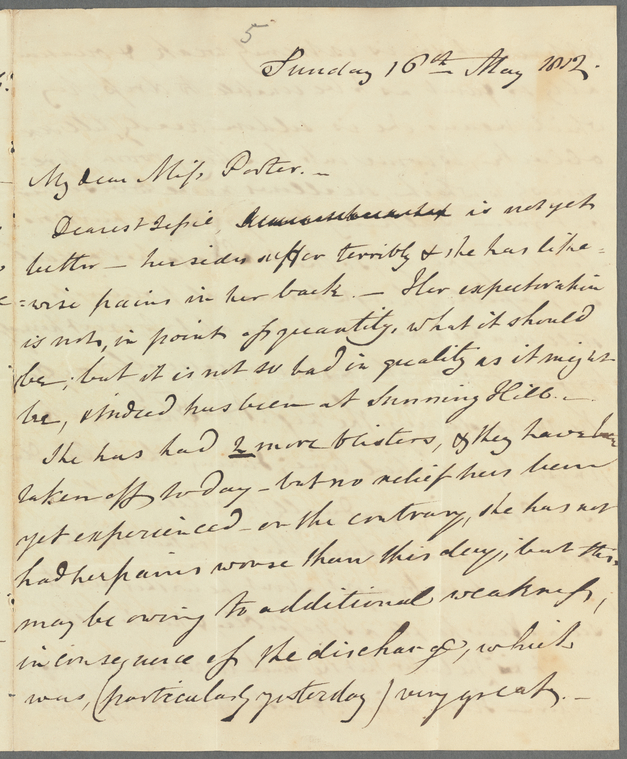 5
Sunday 16th May 1812.
My dear Miss Porter. –
Dearest is not yet
better – her sides suffer terribly & she has like=
=wise pains in her back. – Her expectoration
is not, in point of quantity, what it should
be; but it is not so bad in quality as it might
be, & indeed has been at Sunning Hill. –
She has had 2 more blisters, & they have been
taken off today – but no relief has been
yet experienced – on the contrary, she has not
had her pains worse than this day; but this
may be owing to additional weakness,
in consequence of the discharge, which
was, (particularly yesterday) very great. –